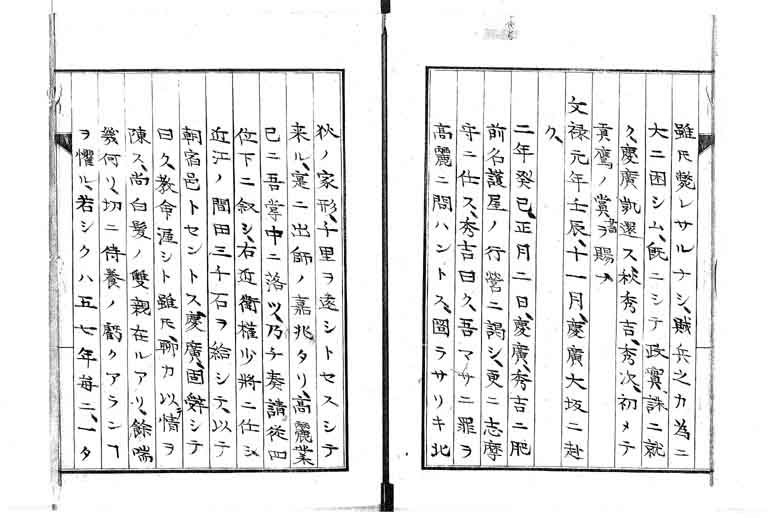 雖𪜈斃レサルナシ、賊兵之カ為ニ
大ニ困シム、既ニシテ政實、誅ニ就
ク、慶廣凱還ス、秋秀吉、秀次、初メテ
貢鷹ノ賞書ヲ賜フ
文禄元年壬辰、十一月、慶廣大坂ニ赴
ク、
二年癸巳、正月二日、慶廣、秀吉ニ肥
前名護屋ノ行營ニ謁シ、更ニ志摩
守ニ仕ス、秀吉曰ク、吾マサニ罪ヲ
高麗ニ問ハントス、圖ラサリキ北
狄ノ家形、千里ヲ遠シトセスシテ
来ル、寔ニ出師ノ嘉兆タリ、高麗業
已ニ吾掌中ニ洛ツ、乃チ奏請従四
位下ニ叙シ、右近衛權少將ニ仕シ
近江ノ間田三千石ヲ給シテ、以テ
朝宿邑トセントス、慶廣、固辞シテ
曰ク、教命渥シト雖𪜈、聊カ以テ情ヲ
陳ス、尚白髪ノ雙親在ルアリ、餘喘
幾何ソ、切ニ侍養ノ虧クアランヿ
ヲ懼ル、若シクハ五七年毎ニ、一タ